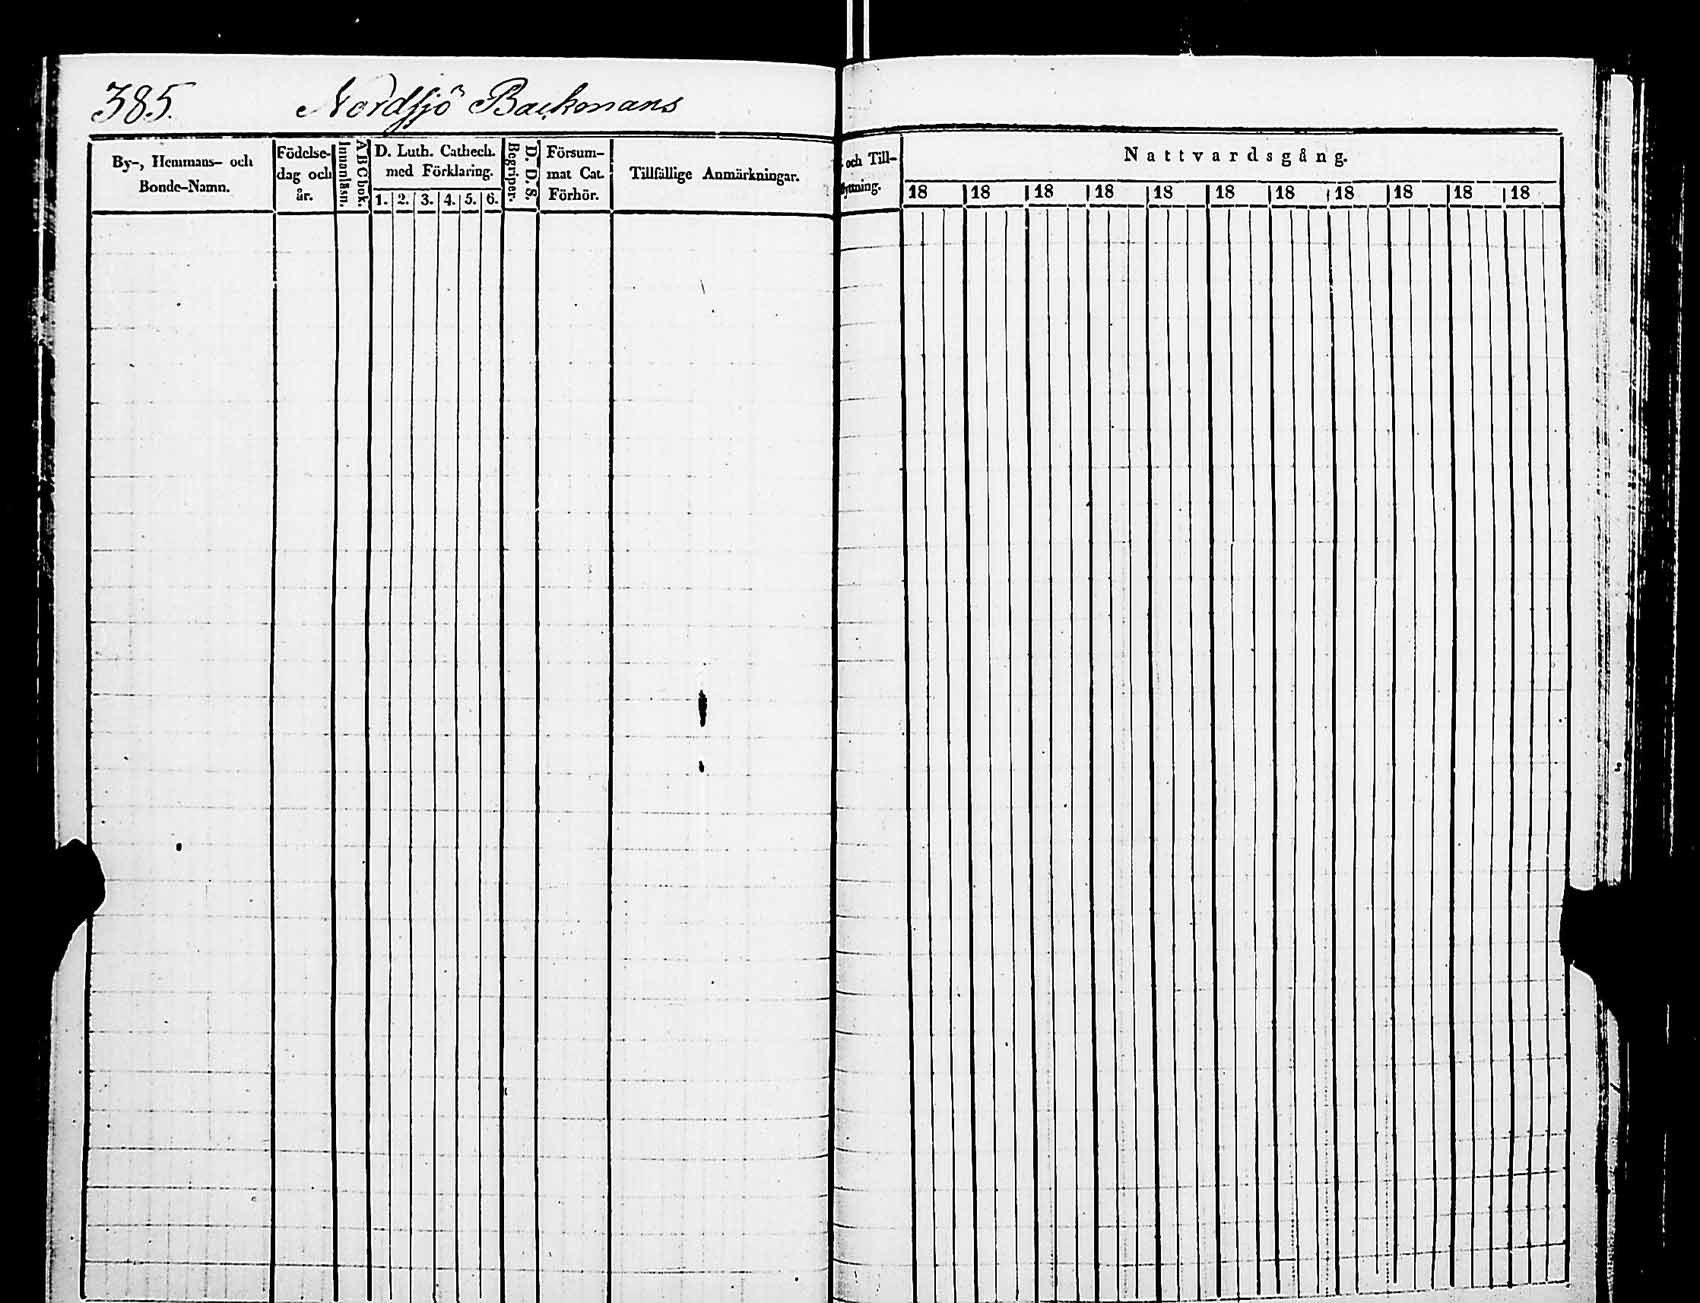 385. Nordsjö Backmans
By-, Hemmans- och
Bonde-Namn.
Födelse-
dag och
år.
Innanläsn.
ABCbok.
D. Luth. Cathech.
med Förklaring.
1. 2. 3. 4. 5. 6.
Begriper.
D. D. S.
Försum-
mat Cat.
Förhör.
Tillfällige Anmärkningar.
och Till-
flyttning.
Nattvardsgång.
18 18 18 18 18 18 18 18 18 18 18